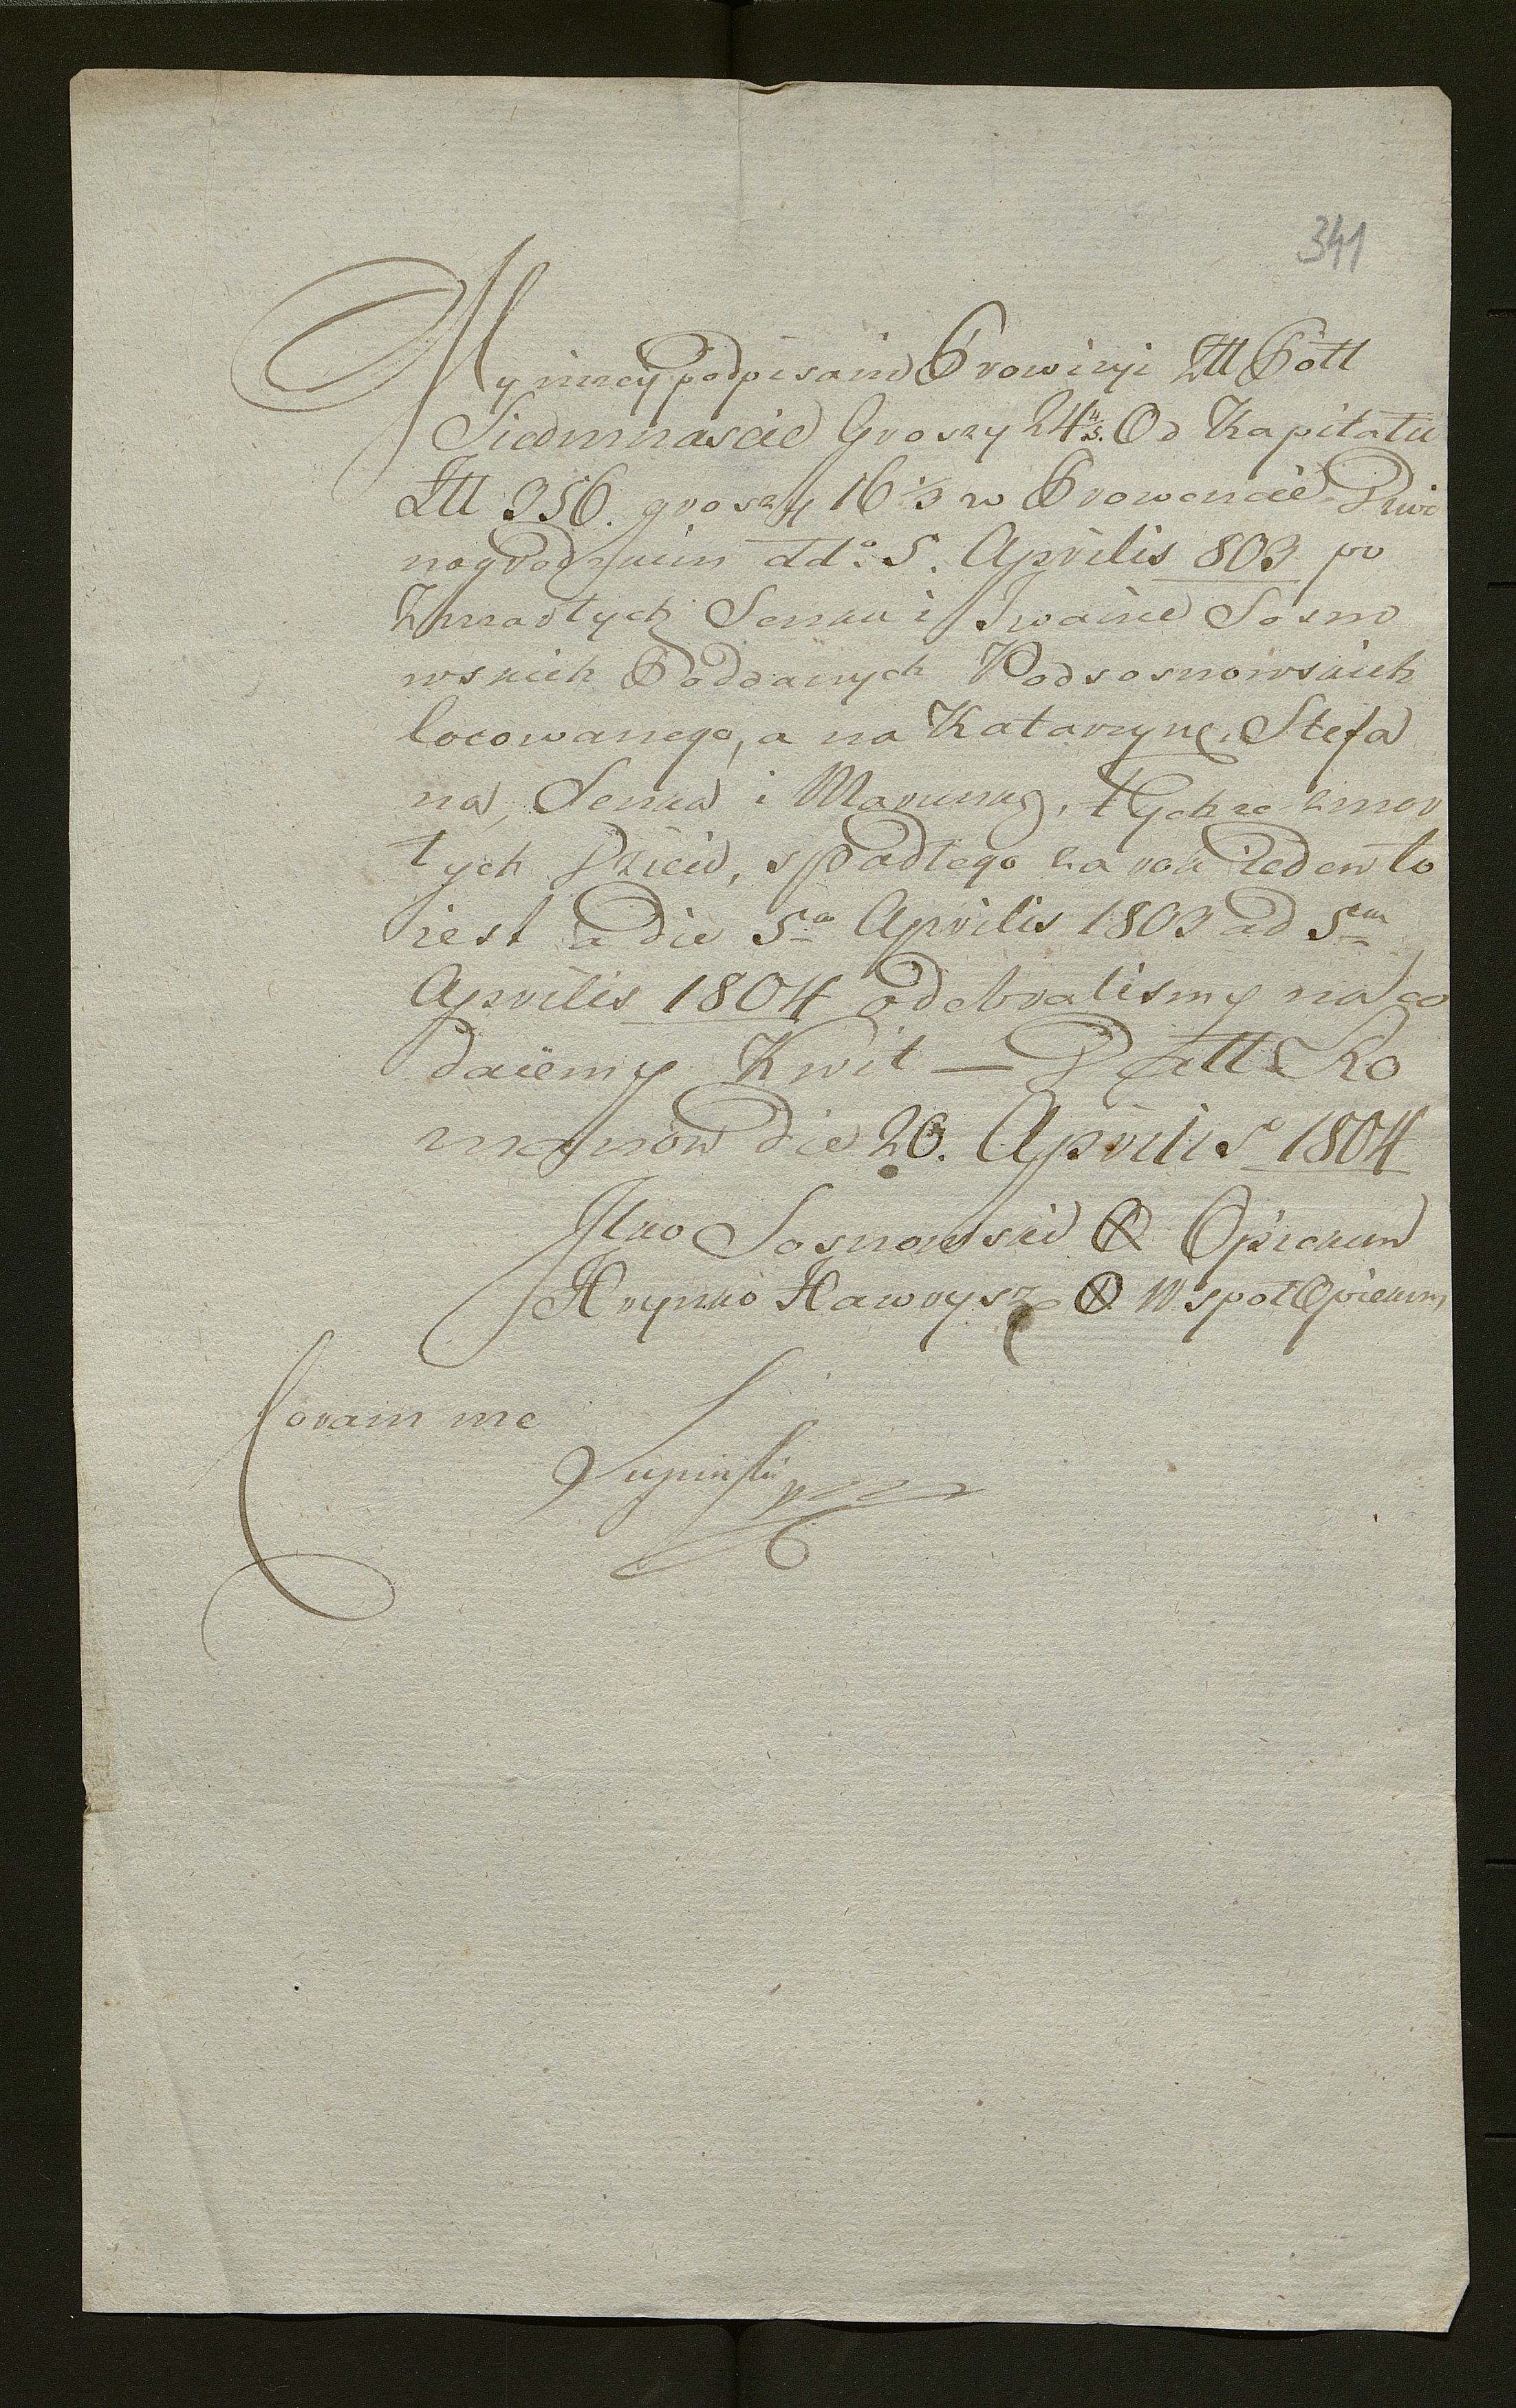 341
My nizey podpisani Prowizyi Złł Pott
Siedmnascie Groszy 24 4/5. Od Kapitału
Złł 356. groszy 16 1/3 w Prowencie Dwi
nogrodzkim dd.o 5. Aprilis 803 po
Zmarłych Senku i Iwanie Sosno
wskich Poddanych Podsosnowskich
locowanego, a na Katarzynę, Stefa
na, Senka i Marunkę, tychze zmar
łych Dzieci, spadłego za rok ieden to
iest a die 5ta Aprilis 1803 ad 5tam
Aprilis 1804 odebralismy na co
daiemy Kwit — Datt Ro
manow die 26. Aprilis 1804
Ilko Sosnowski X Opiekun
Hrynko Hawrysz X WspołOpiekun
Coram me